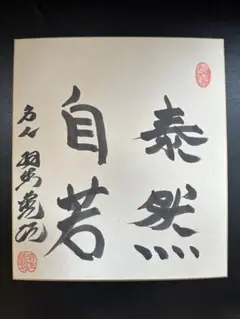 泰然
自若
名人 羽生善治